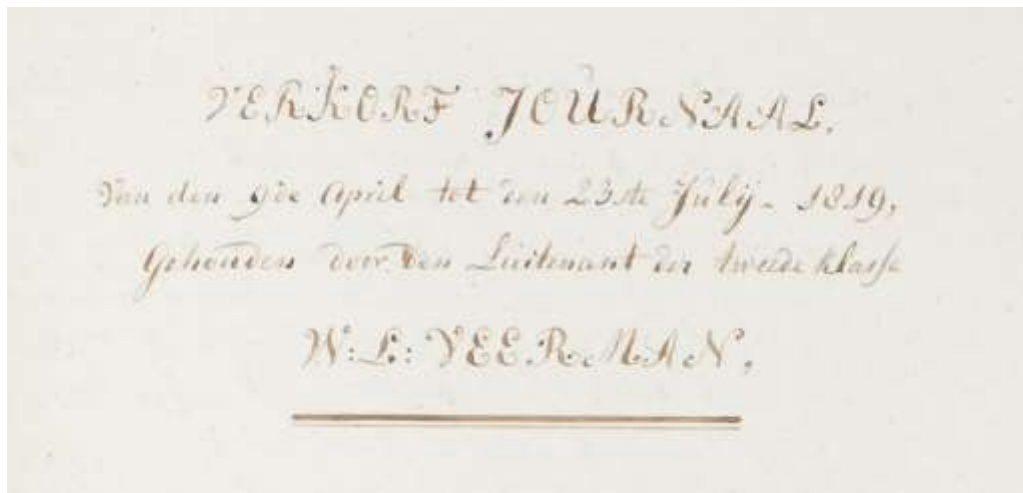 VERKORT JOURNAAL.
Van den 9de April tot den 23ste Julij. 1819,
Gehouden door den Luitenant der tweede klasse
W: L: VEERMAN.